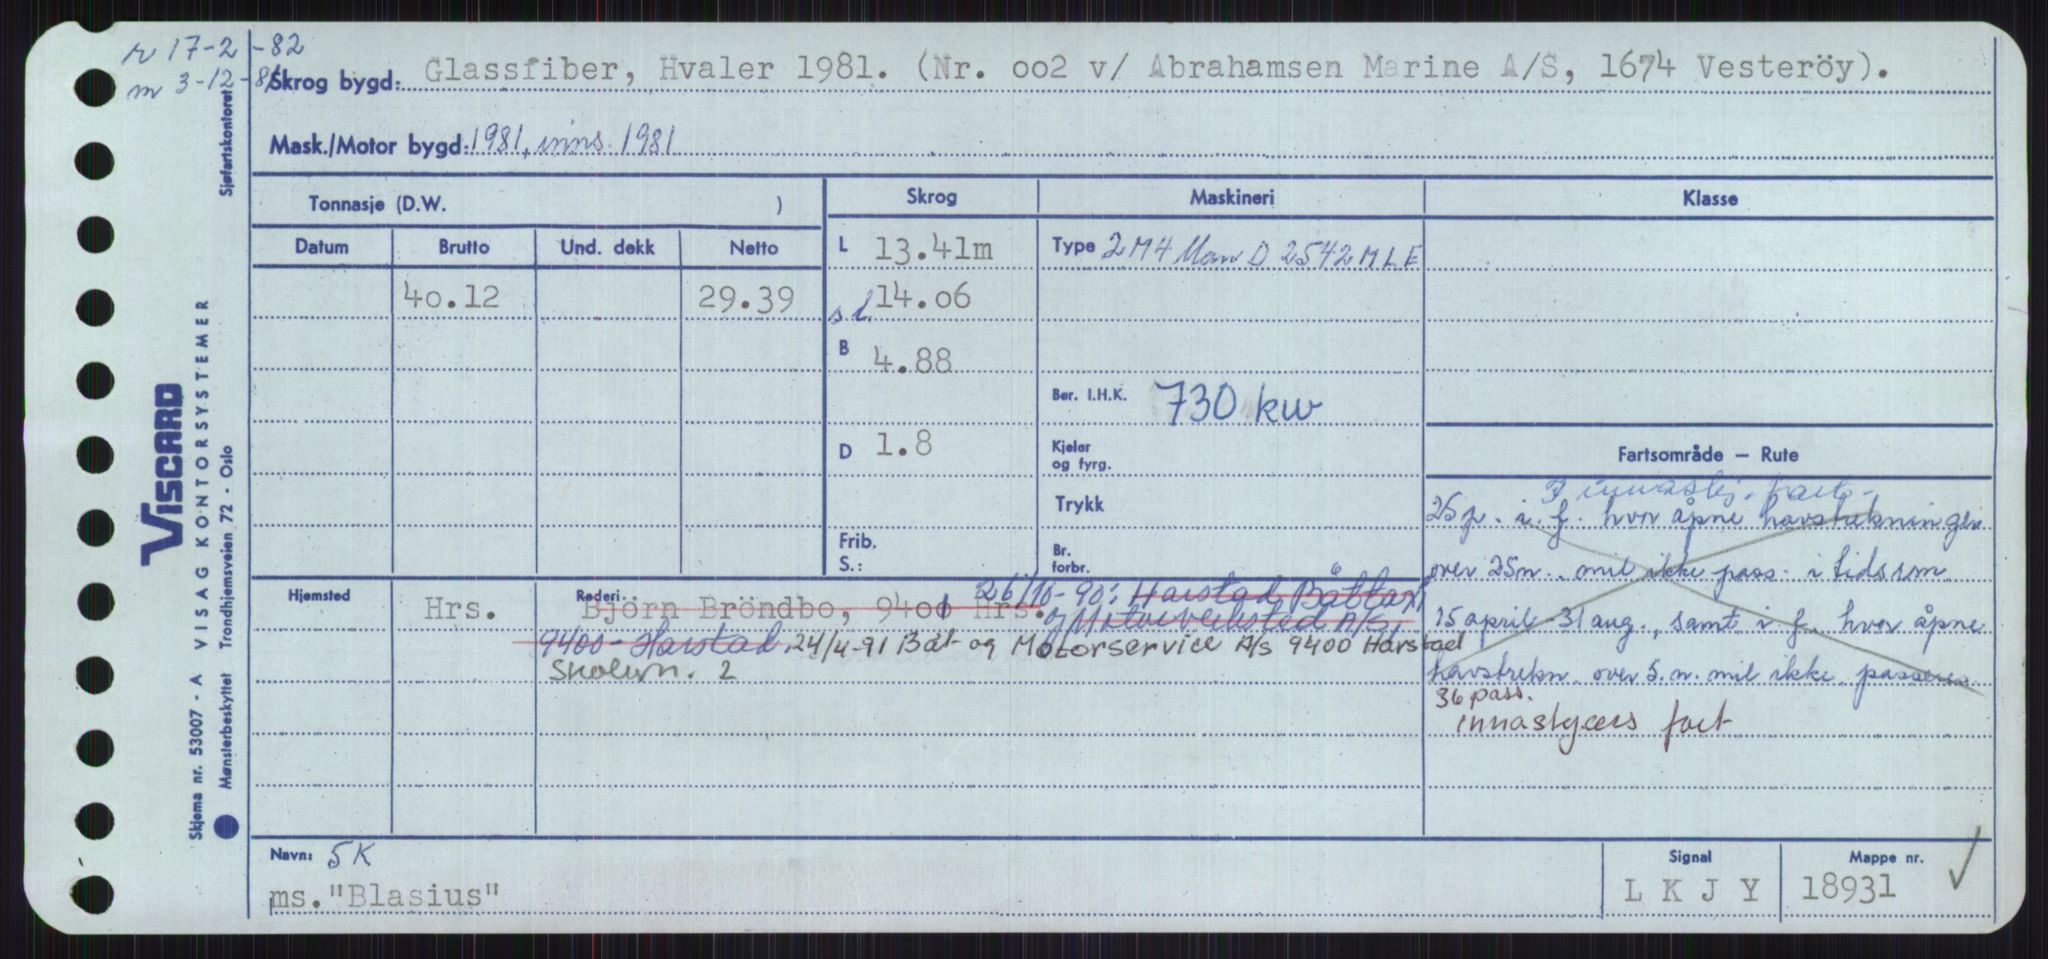 r 17-2-82
m 3-12-81
Skrog bygd: Glassfiber, Hvaler 1981. (Nr. oo2 v/ Abrahamsen Marine A/S, 1674 Vesteröy).
Mask./Motor bygd: 1981, inns. 1981
Sjøfartskontoret
VISCARD
VISAG KONTORSYSTEMER
Skjema nr. 53007 - A
Mønsterbeskyttet Trondhjemsveien 72 - Oslo
Tonnasje (D.W. )
Skrog Maskineri Klasse
Datum Brutto Und. dekk Netto
L 13.41m
Type 2 M4 Man D 2542 MLE
40.12 29.39
s l. 14.o6
B 4.88
Ber. I.H.K. 730 kw
D 1.8
Kjelar
og fyrg.
Trykk
Frib.
S.:
Br.
forbr.
Fartsområde — Rute
I innaskj. fart.
25 p. i. f. hvor åpne havstrekninger
over 25 n. mil ikke pass. i tidsrom
15 april - 31 aug., samt i f. hvor åpne
havstrekn. over 5. n. mil ikke passeres
36 pass.
innaskjærs fart
Hjemsted Hrs.
Rederi Björn Bröndbo, 9400 Hrs.
26/10-90: Harstad Båttaxi
og Motorverksted A/S,
9400 - Harstad. 24/4-91 Båt- og Motorservice A/s 9400 Harstad
Skolevn. 2
Navn: SK
ms. "Blasius"
Signal
L K J Y
Mappe nr.
18931